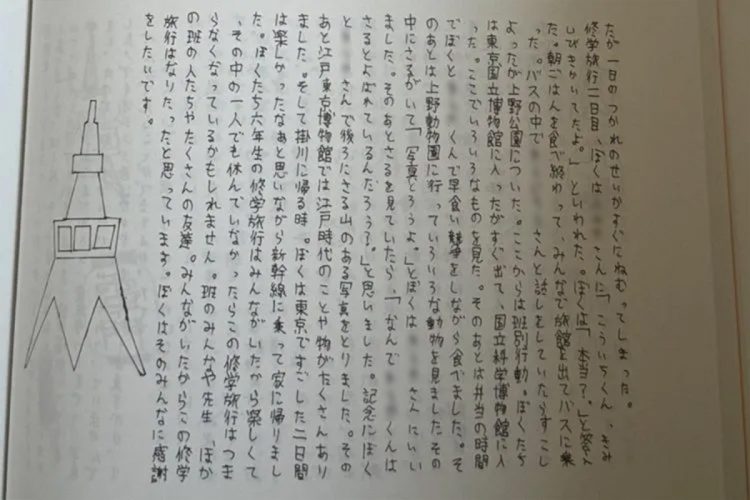 たが一日のつかれのせいかすぐにねむってしまった。
修学旅行二日目、ぼくは さんに「こういちくん、きみ
いびきかいてたよ。」といわれた。ぼくは「本当?。」と答え
た。朝ごはんを食べ終わって、みんなで旅館を出てバスに乗
った。バスの中で さんと話しをしていたらすこし
よったが上野公園についた。ここからは班別行動。ぼくたち
は東京国立博物館に入ったがすぐ出て、国立科学博物館に入
った。ここでいろいろなものを見た。そのあとは弁当の時間
でぼくと くんで早食い競争をしながら食べました。そ
のあとは上野動物園に行っていろいろな動物を見ましたその
中にさるがいて「写真とろうよ。」とぼくは さんにいい
ました。そのあとさるを見ていたら、「なんで くんは
さるとよばれているんだろう?。」と思いました。記念にぼく
と さんで後ろにさる山のある写真をとりました。その
あと江戸東京博物館では江戸時代のことや物がたくさんあり
ました。そして掛川に帰る時。ぼくは東京ですごした二日間
は楽しかったなぁと思いながら新幹線に乗って家に帰りまし
た。ぼくたち六年生の修学旅行はみんながいたから楽しくて
、その中の一人でも休んでいなかったらこの修学旅行はつま
らなくなっているかもしれません。班のみんなや先生、ほか
の班の人たちやたくさんの友達。みんながいたからこの修学
旅行はなりたったと思っています。ぼくはそのみんなに感謝
をしたいです。